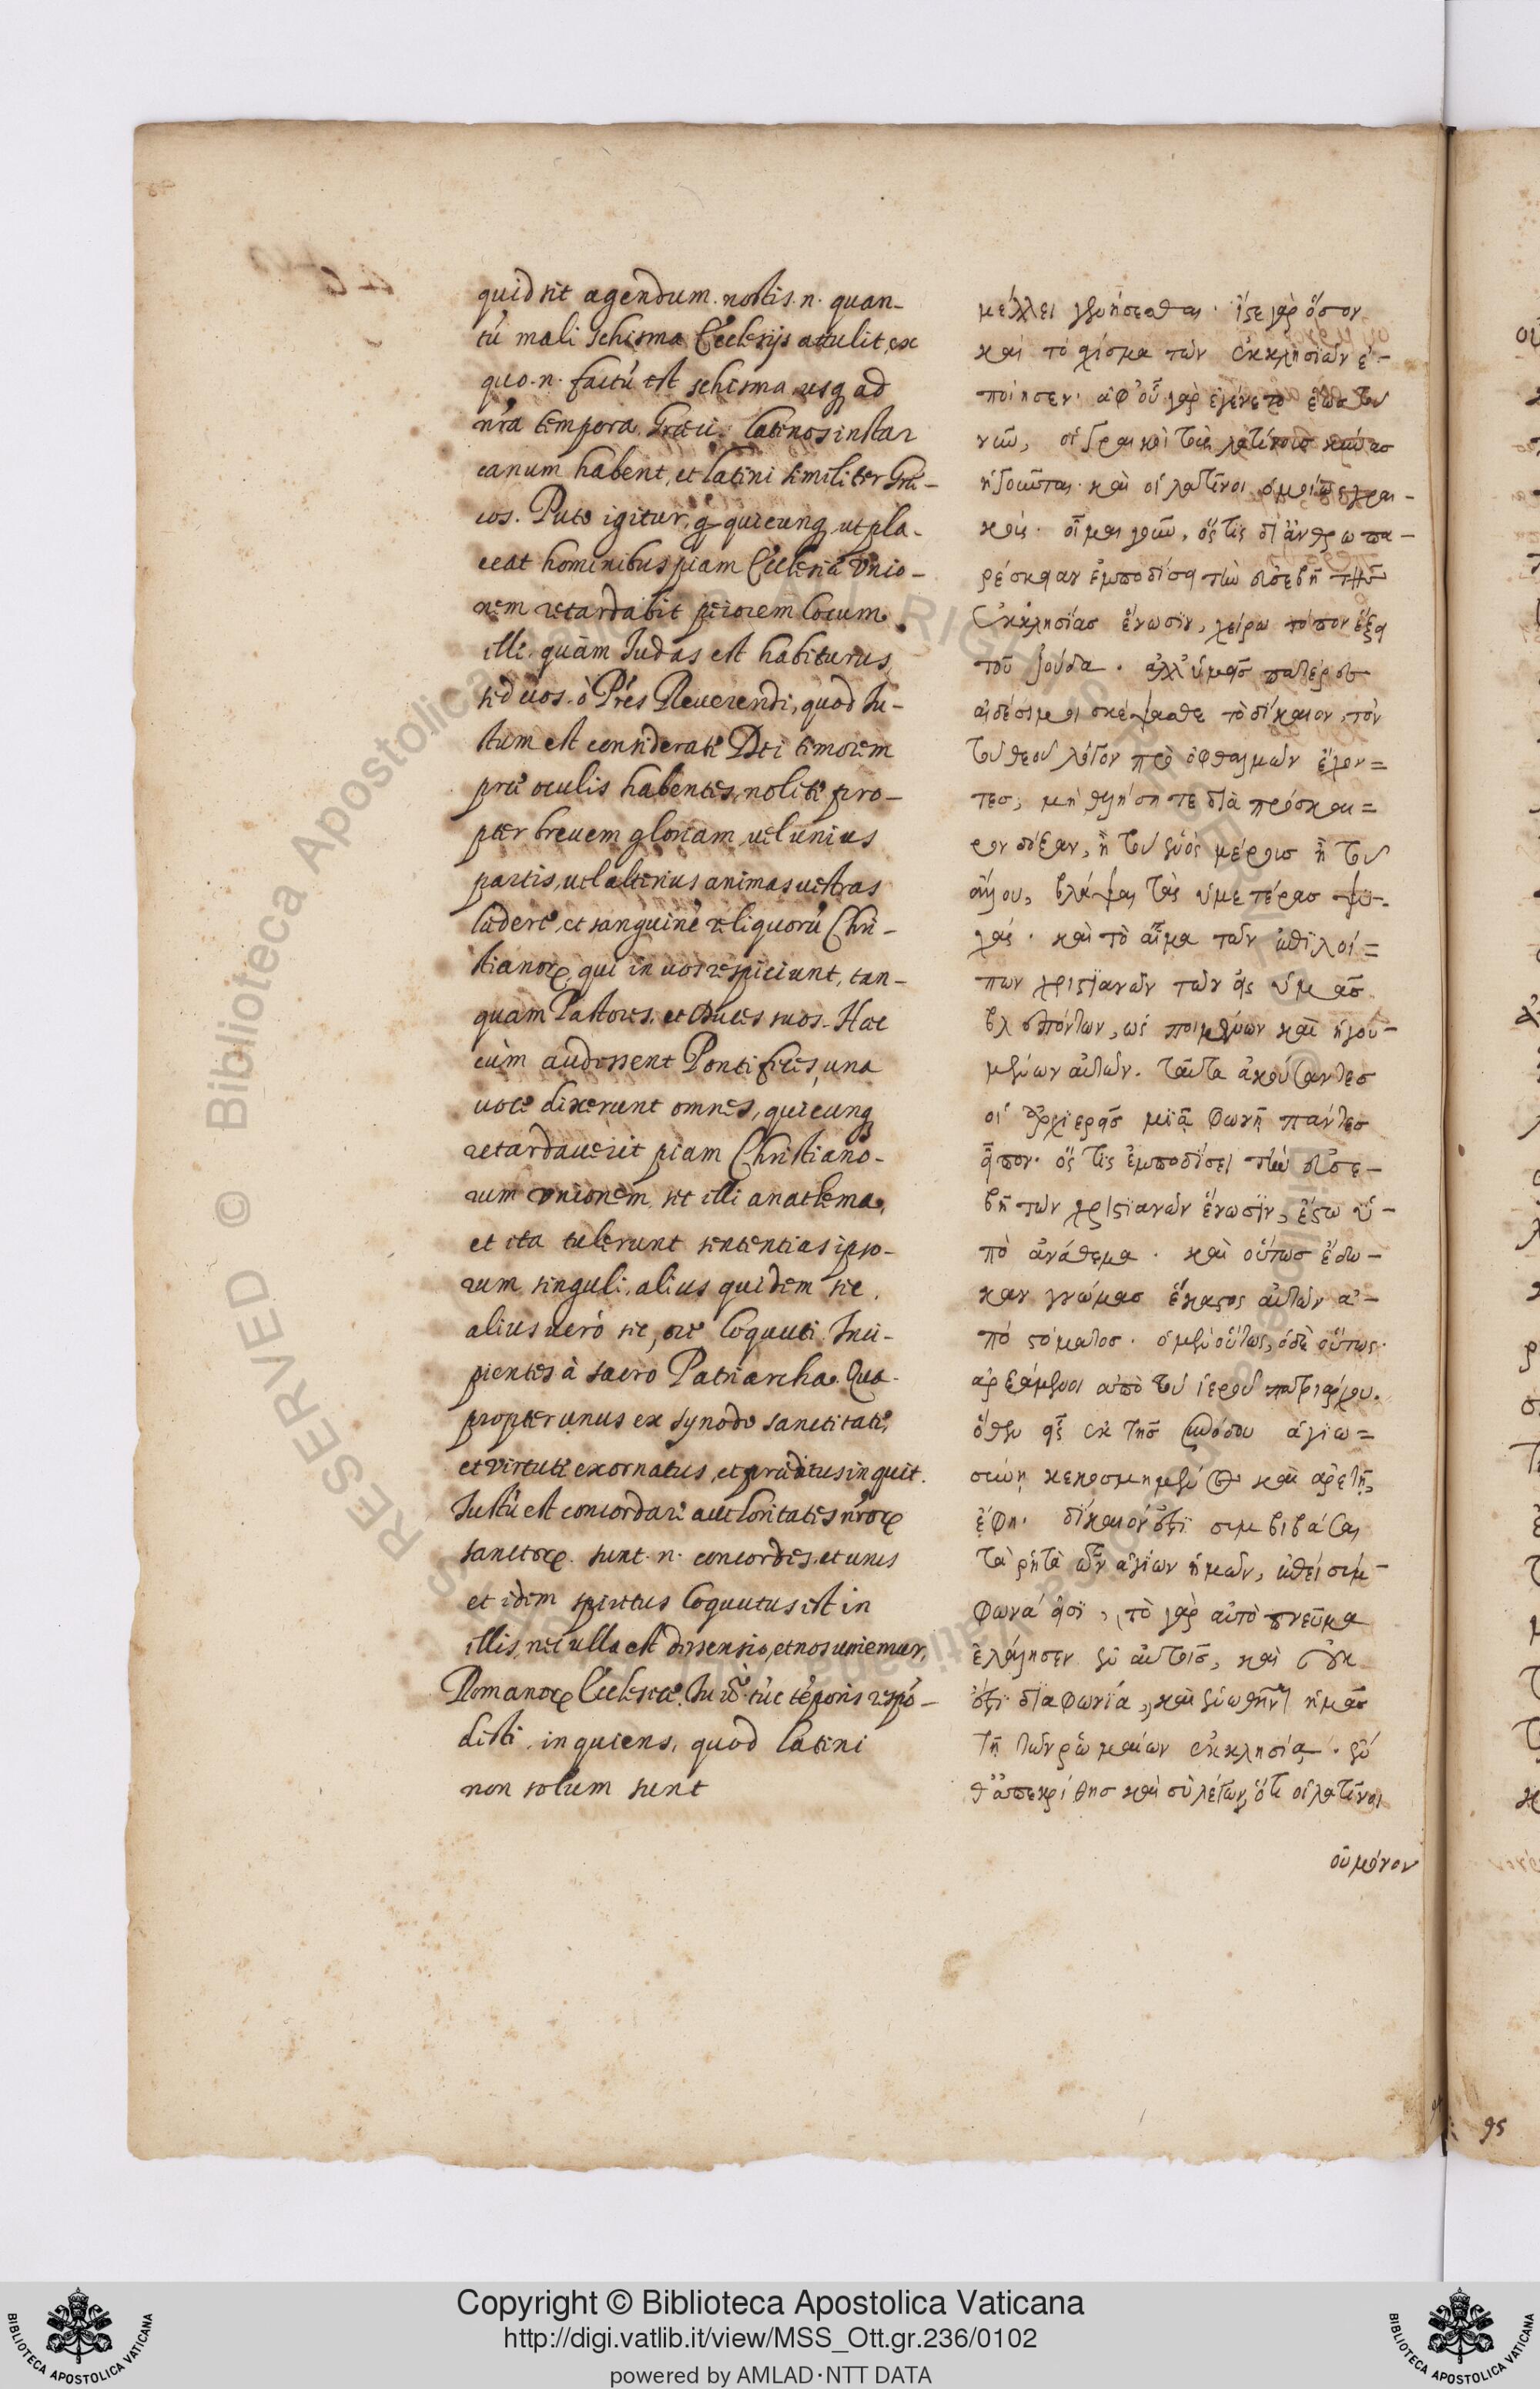 quid sit agendum. nostis. n. quan-
tú mali schisma Ecclesijs attulit, ex
quo. n. factú est schisma usq ad
nra tempora. Graeci. latinos instar
canum habent, et latini similiter Grae-
cos. Puto igitur, q quicunq ut pla-
ceat hominibus piam Ecclesiæ Vnio-
nem retardabit peiorem locum
illi, quàm Iudas est habiturus,
sed uos. ò Prés Reuerendi, quod Iu-
stum est considerate Dei timorem
præ oculis habentes, nolite pro-
pter breuem gloriam, uel unius
partis, uel alterius animas uestras
lædere, et sanguiné reliquorú Chri-
stianorꝝ, qui in uos respiciunt, tan-
quàm Pastores, et Duces suos. Hæc
cùm audissent Pontifices, una
uoce dixerunt omnes, quicunq
retardauerit piam Christiano-
rum vnionem, sit illi anathema,
et ita tulerunt sententias ipso-
rum singuli, alius quidem sic,
alius uerò sic, ore loquuti. Inci-
pientes à sacro Patriarcha. Qua-
propter unus ex synodo sanctitate,
et virtute exornatus, et præditus inquit.
Iustú est concordare aucthoritates nrorꝝ
sanctorꝝ. sunt. n. concordes, et unus
et idem spiritus loquutus est in
illis, nec ulla est dissensio, et nos uniemur,
Romanorꝝ Ecclesiæ. tùc téporis respó-
disti, inquiens, quod latini
non solum sunt
μέλλει γενήσεσθαι· ἴστε γὰρ ὅσον
καὶ τὸ σχίσμα τῶν ἐκκλησιῶν ἐ-
ποίησεν· ἀφ' οὗ γὰρ ἐγένετο ἕως τοῦ
νῦν, οἱ Γραικοὶ τοὺς λατίνους κύνας
ἡγοῦνται· καὶ οἱ λατῖνοι ὁμοίως γραι-
κούς· οἶμαι γοῦν, ὅςτις δι' ἀνθρωπα-
ρέσκειαν ἐμποδίσει τὴν εὐσεβῆ τῆς
ἐκκλησίας ἕνωσιν, χείρω τόπον ἕξει
τοῦ Ἰούδα· ἀλλ' ὑμᾶς πατέρες
αἰδέσιμοι σκέψασθε τὸ δίκαιον, τὸν
τοῦ θεοῦ λόγον πρὸ ὀφθαλμῶν ἔχον=
τες, μὴ θελήσητε διὰ πρόσκαι=
ρον δόξαν, ἢ τοῦ ἑνὸς μέρους ἢ τοῦ
ἄλλου, βλάψαι τὰς ὑμετέρας ψυ-
χάς· καὶ τὸ αἷμα τῶν ἐπιλοί=
πων χριστιανῶν τῶν εἰς ὑμᾶς
βλεπόντων, ὡς ποιμένων καὶ ἡγου-
μένων αὐτῶν. ταῦτα ἀκούσαντες
οἱ ἀρχιερεῖς μιᾷ φωνῇ πάντες
εἶπον· ὅςτις ἐμποδίσει τὴν εὐσε-
βῆ τῶν χριστιανῶν ἕνωσιν, ἔστω ὑ-
πὸ ἀνάθεμα· καὶ οὕτως ἔδω-
καν γνώμας ἕκαστος αὐτῶν ἀ-
πὸ στόματος· ὁ μὲν οὕτως, ὁ δὲ οὕτως·
ἀρξάμενοι ἀπὸ τοῦ ἱεροῦ πατριάρχου.
ὅθεν εἷς ἐκ τῆς συνόδου ἁγιω=
σύνῃ κεκοσμημένος καὶ ἀρετῇ,
ἔφη· δίκαιόν ἐστι συμβιβάσαι
τὰ ῥητὰ τῶν ἁγίων ἡμῶν, ἐπεὶ σύμ-
φωνά εἰσι, τὸ γὰρ αὐτὸ πνεῦμα
ἐλάλησεν ἐν αὐτοῖς, καὶ οὐκ
ἔστι διαφωνία, καὶ ἑνωθῆναι ἡμᾶς
τῇ τῶν ῥωμαίων ἐκκλησίᾳ·
ἀπεκρίθης καὶ σὺ λέγων, ὅτι οἱ λατῖνοι
οὐ μόνον
95
Copyright © Biblioteca Apostolica Vaticana
http://digi.vatlib.it/view/MSS_Ott.gr.236/0102
powered by AMLAD·NTT DATA
BIBLIOTECA APOSTOLICA VATICANA
BIBLIOTECA APOSTOLICA VATICANA